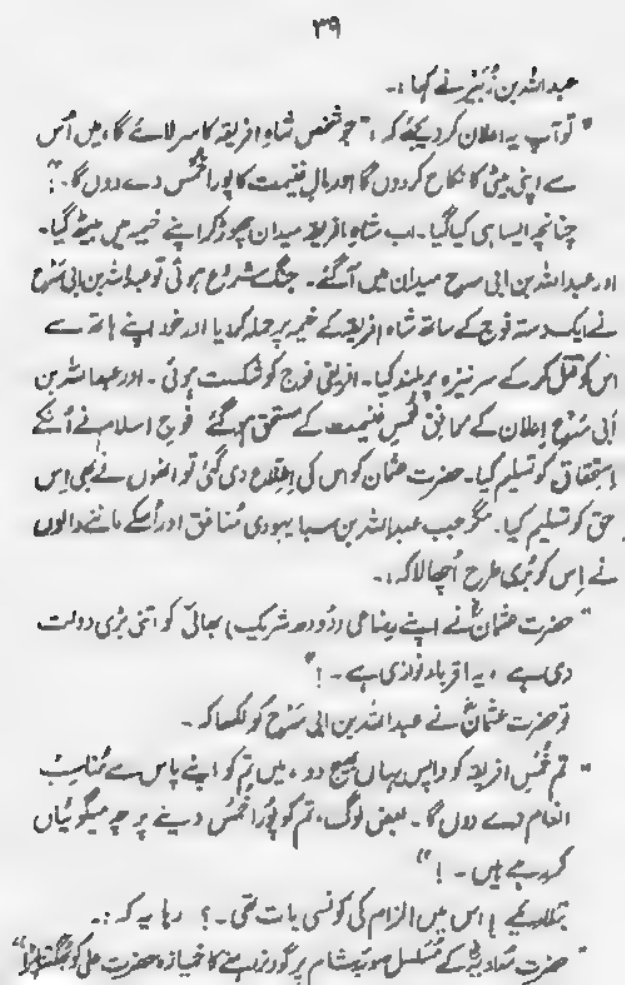 ۳۹
عبداللہ بن زُبَیرؓ نے کہا :۔
" تو آپ یہ اعلان کر دیجئے کہ : " جو شخص شاہِ افریقہ کا سر لائے گا ، میں اُس
سے اپنی بیٹی کا نکاح کر دوں گا اور مالِ غنیمت کا پورا خُمُس دے دوں گا ۔ "
چنانچہ ایسا ہی کیا گیا ۔ اب شاہِ افریقہ میدان چھوڑ کر اپنے خیمہ میں بیٹھ گیا ۔
اور عبداللہ بن ابی سرح میدان میں آ گئے ۔ جنگ شروع ہوئی تو عبداللہ بن ابی سَرْح
نے ایک دستہ فوج کے ساتھ شاہ افریقہ کے خیمہ پر حملہ کر دیا اور خود اپنے ہاتھ سے
اس کو قتل کر کے سر نیزہ پر بلند کیا ۔ افریقی فوج کو شکست ہوئی ۔ اور عبداللہ بن
اَبی سَرْح اِعلان کے مطابق خُمسِ غنیمت کے مستحق ہو گئے فوجِ اسلام نے اُنکے
اِستحقاق کو تسلیم کیا ۔ حضرت عثمان کو اس کی اِطّلاع دی گئی تو انھوں نے بھی اِس
حق کو تسلیم کیا ۔ مگر جب عبداللہ بن سبا یہودی مُنافق اور اُسکے ماننے والوں
نے اِس کو بُری طرح اُچھالا کہ :۔
" حضرت عثمانؓ نے اپنے رضاعی (دُودھ شریک) بھائی کو اتنی بڑی دولت
دی ہے ، یہ اقربا نوازی ہے ۔ ! "
تو حضرت عثمانؓ نے عبداللہ بن ابی سَرْح کو لکھا کہ ۔
" تم خُمُسِ افریقہ کو واپس یہاں بھیج دو ، میں تم کو اپنے پاس سے مُناسِب
انعام دے دوں گا ۔ بعض لوگ ، تم کو پُورا خُمُس دینے پر چہ میگوئیاں
کر رہے ہیں ۔ ! "
بتلائیے ! اس میں الزام کی کونسی بات تھی ۔ ؟ رہا یہ کہ :۔
" حضرت مُعاویہؓ کے مُسَلسل صوبۂ شام پر گورنر رہنے کا خمیازہ حضرت علی کو بُھگتنا پڑا "